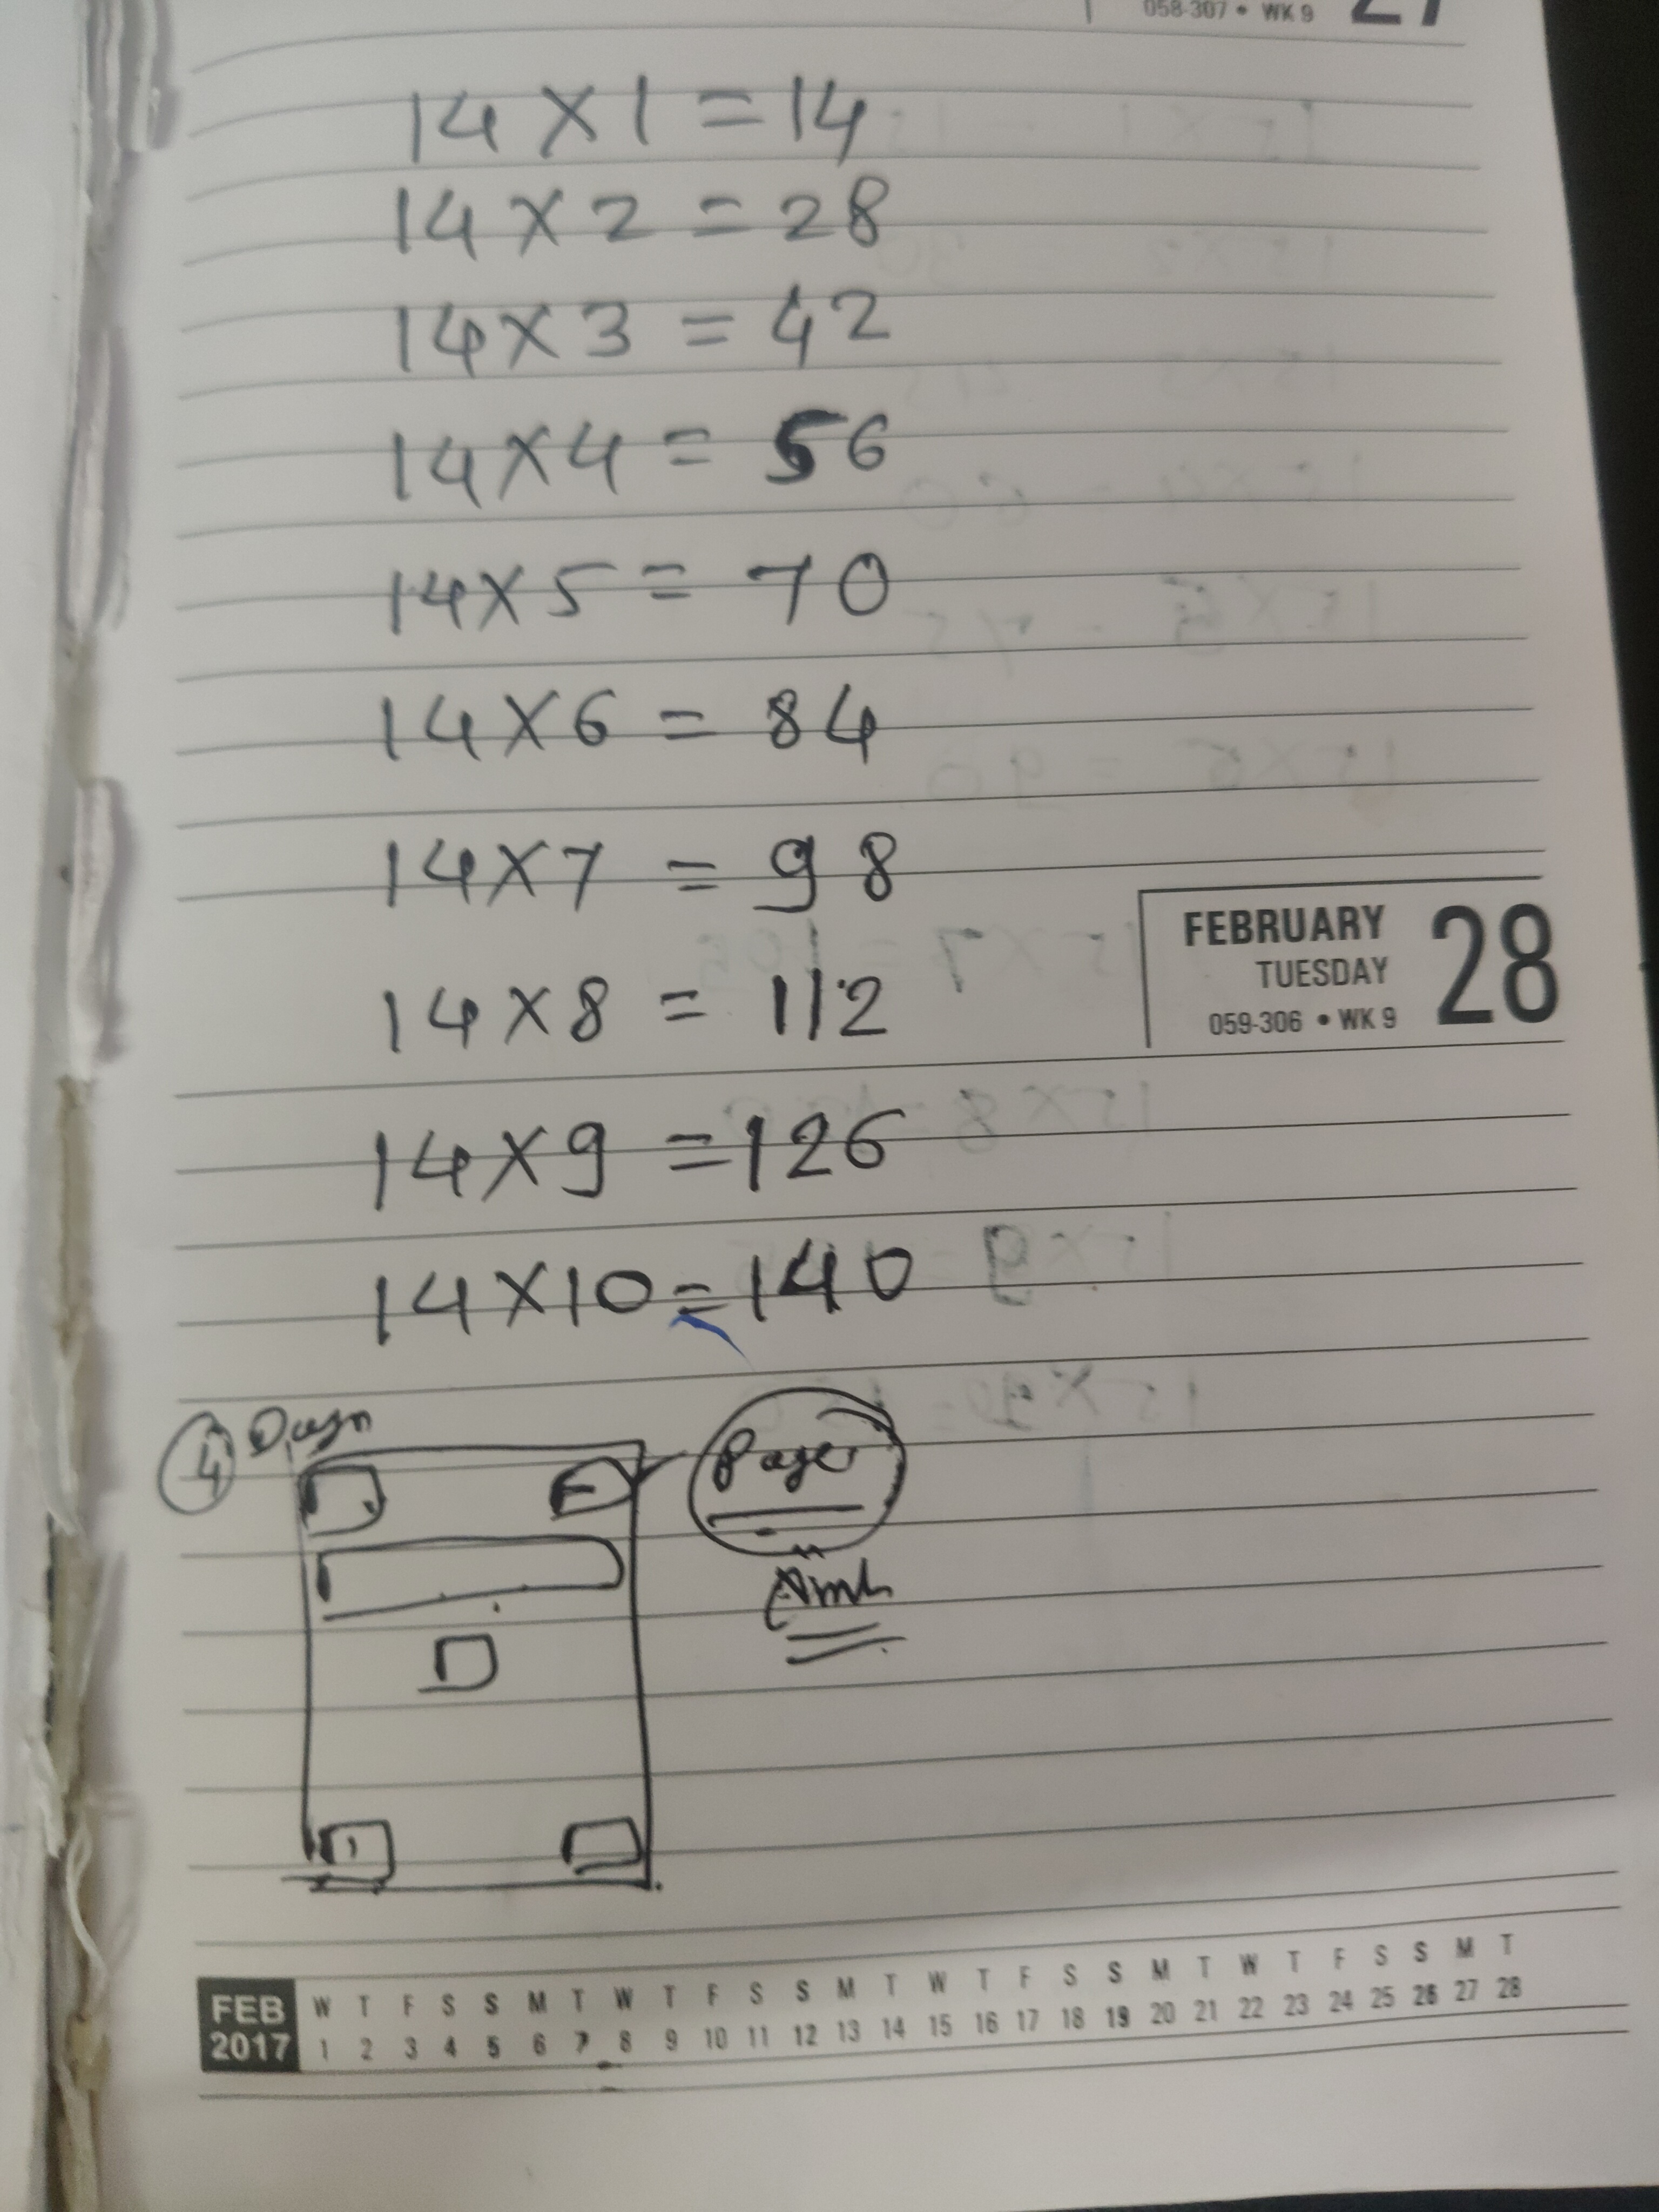 058-307 • WK 9
14 X 1 = 14
14 X 2 = 28
14 X 3 = 42
14 X 4 = 56
14 X 5 = 70
14 X 6 = 84
14 X 7 = 98
FEBRUARY 28
TUESDAY
059-306 • WK 9
14 X 8 = 112
14 X 9 = 126
14 X 10 = 140
4
FEB W T F S S M T W T F S S M T W T F S S M T W T F S S M T
2017 1 2 3 4 5 6 7 8 9 10 11 12 13 14 15 16 17 18 19 20 21 22 23 24 25 26 27 28